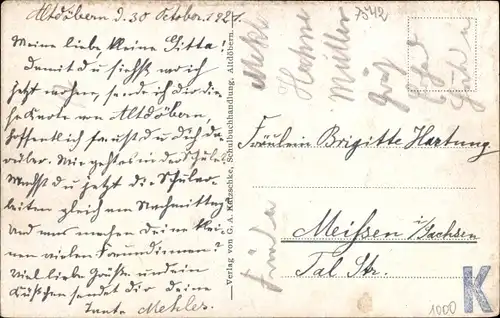 Altdöbern d. 30 October 1927.
Meine liebe kleine Gitta!
Damit du siehst wo ich
jetzt wohne, sende ich dir die
se Karte von Altdöbern,
hoffentlich freust du dich da
rüber. Wie geht es in der Schule?
Machst du jetzt die Schular-
beiten gleich am Nachmittag
Und was machen deine klei
nen vielen Freundinnen?
Viel liebe Grüße und ein
Küßchen sendet dir deine
Tante Mehler.
Verlag von G. A. Kutzschke, Schulbuchhandlung, Altdöbern.
7542
Hahne
Müller
Fräulein Brigitte Hartung
Meißen i/Sachsen
Tal Str.
1000
K